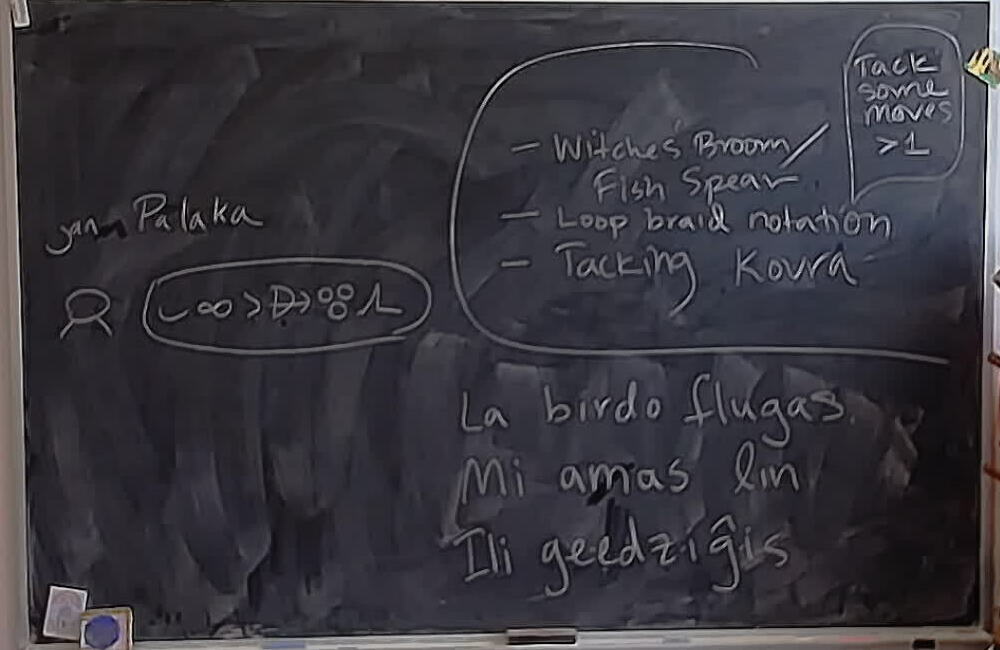 jan Palaka
- Witches' Broom/
Fish Spear
- Loop braid notation
- Tacking Kovra
Tack
some
moves
>1
La birdo flugas.
Mi amas lin
Ili geedziĝis